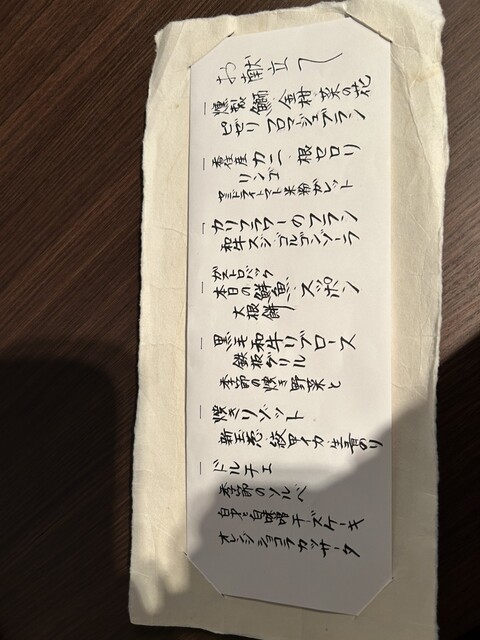 お献立
一 燻製鰤 金柑 菜の花
ピゼリ フロマージュブラン
一 香住産カニ 根セロリ
リンゴ
ドライトマト米粉ガレット
一 カリフラワーのフラン
和牛スジ ゴルゴンゾーラ
ガストロバック
一 本日の鮮魚 スッポン
大根餅
一 黒毛和牛リブロース
鉄板グリル
季節の焼き野菜と
一 焼きリゾット
新玉葱 紋甲イカ 生青のり
一 ドルチェ
季節のソルベ
白味噌チーズケーキ
オレンジショコラカッサータ